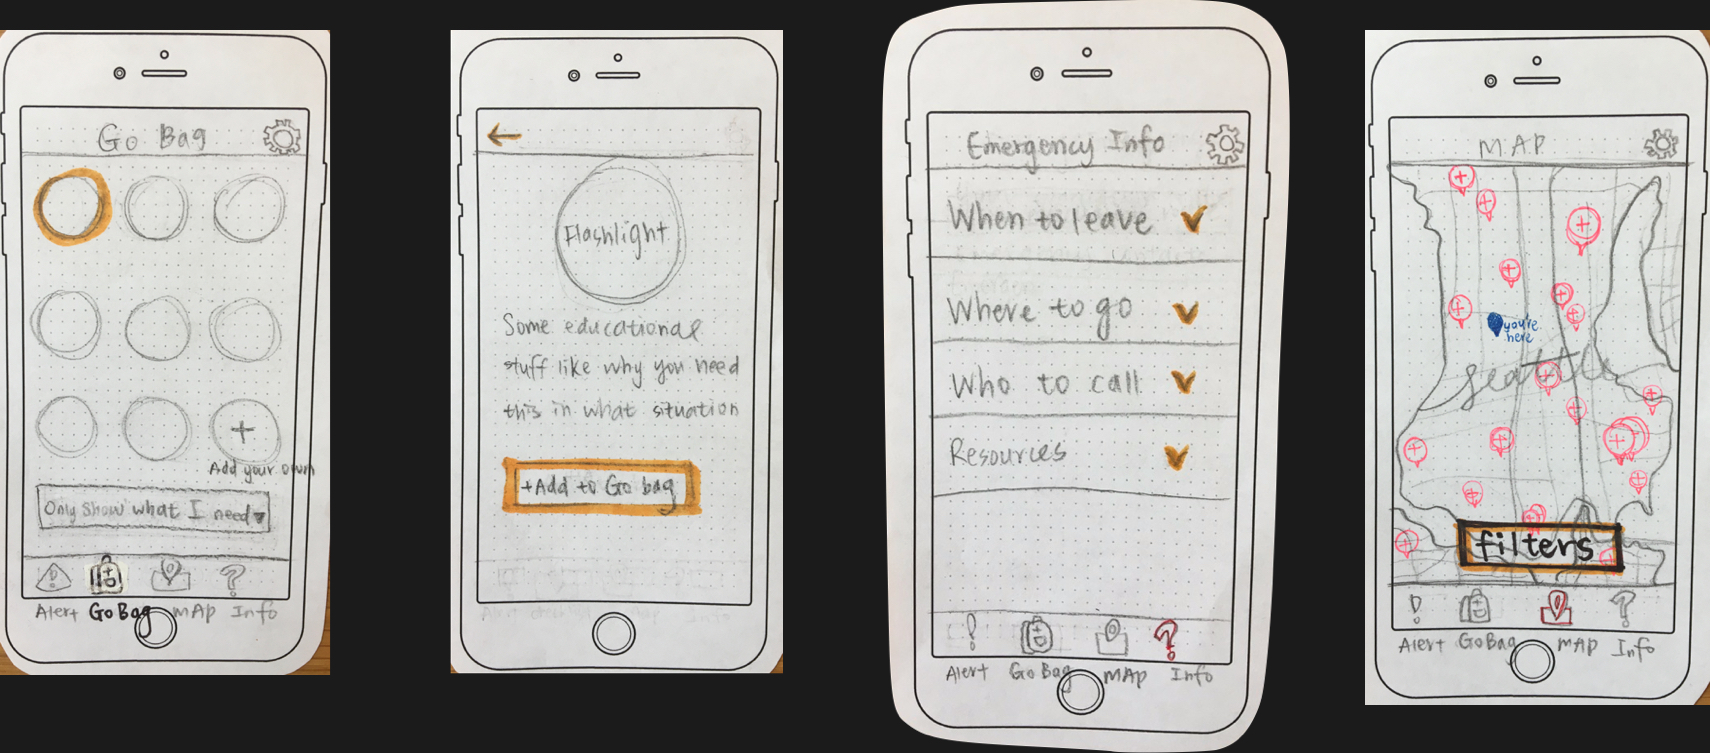 Go Bag
+
Add your own
Only show what I need
Alert GoBag mAp Info
Flashlight
Some educational
stuff like why you need
this in what situation
+Add to Go bag
Emergency Info
When to leave
Where to go
Who to call
Resources
Alert Go Bag mAp Info
MAP
you're
here
Seattle
filters
Alert GoBag mAp Info